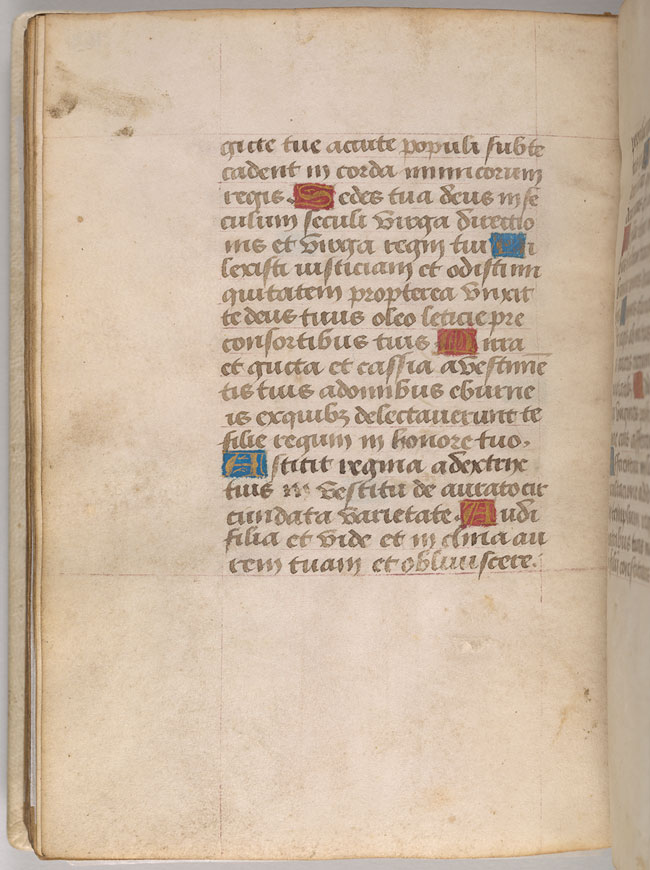 gitte tue accute populi subte
cadent in corda inimicorum
regis. Sedes tua deus in se
culum seculi virga directio
nis et virga regni tui Di
lexisti iusticiam et odisti ini
quitatem propterea vnxit
te deus tuus oleo leticie pre
consortibus tuis Mirra
et gucta et cassia a vestime
tis tuis a domibus eburne
is exquibz delectauerunt te
filie regum in honore tuo.
Astitit regina a dextris
tuis in vestitu de aurato cir
cundata varietate. Audi
filia et vide et in clina au
rem tuam et obliuiscere.